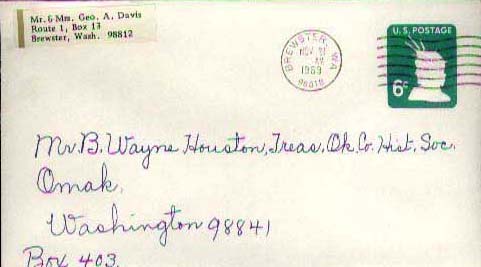 Mr. & Mrs. Geo. A. Davis
Route 1, Box 13
Brewster, Wash. 98812
BREWSTER, WA
NOV
1969
U.S. POSTAGE
6c
Mr. B. Wayne Houston, Treas. Ok. Co. Hist. Soc.
Omak,
Washington 98841
Box 403.